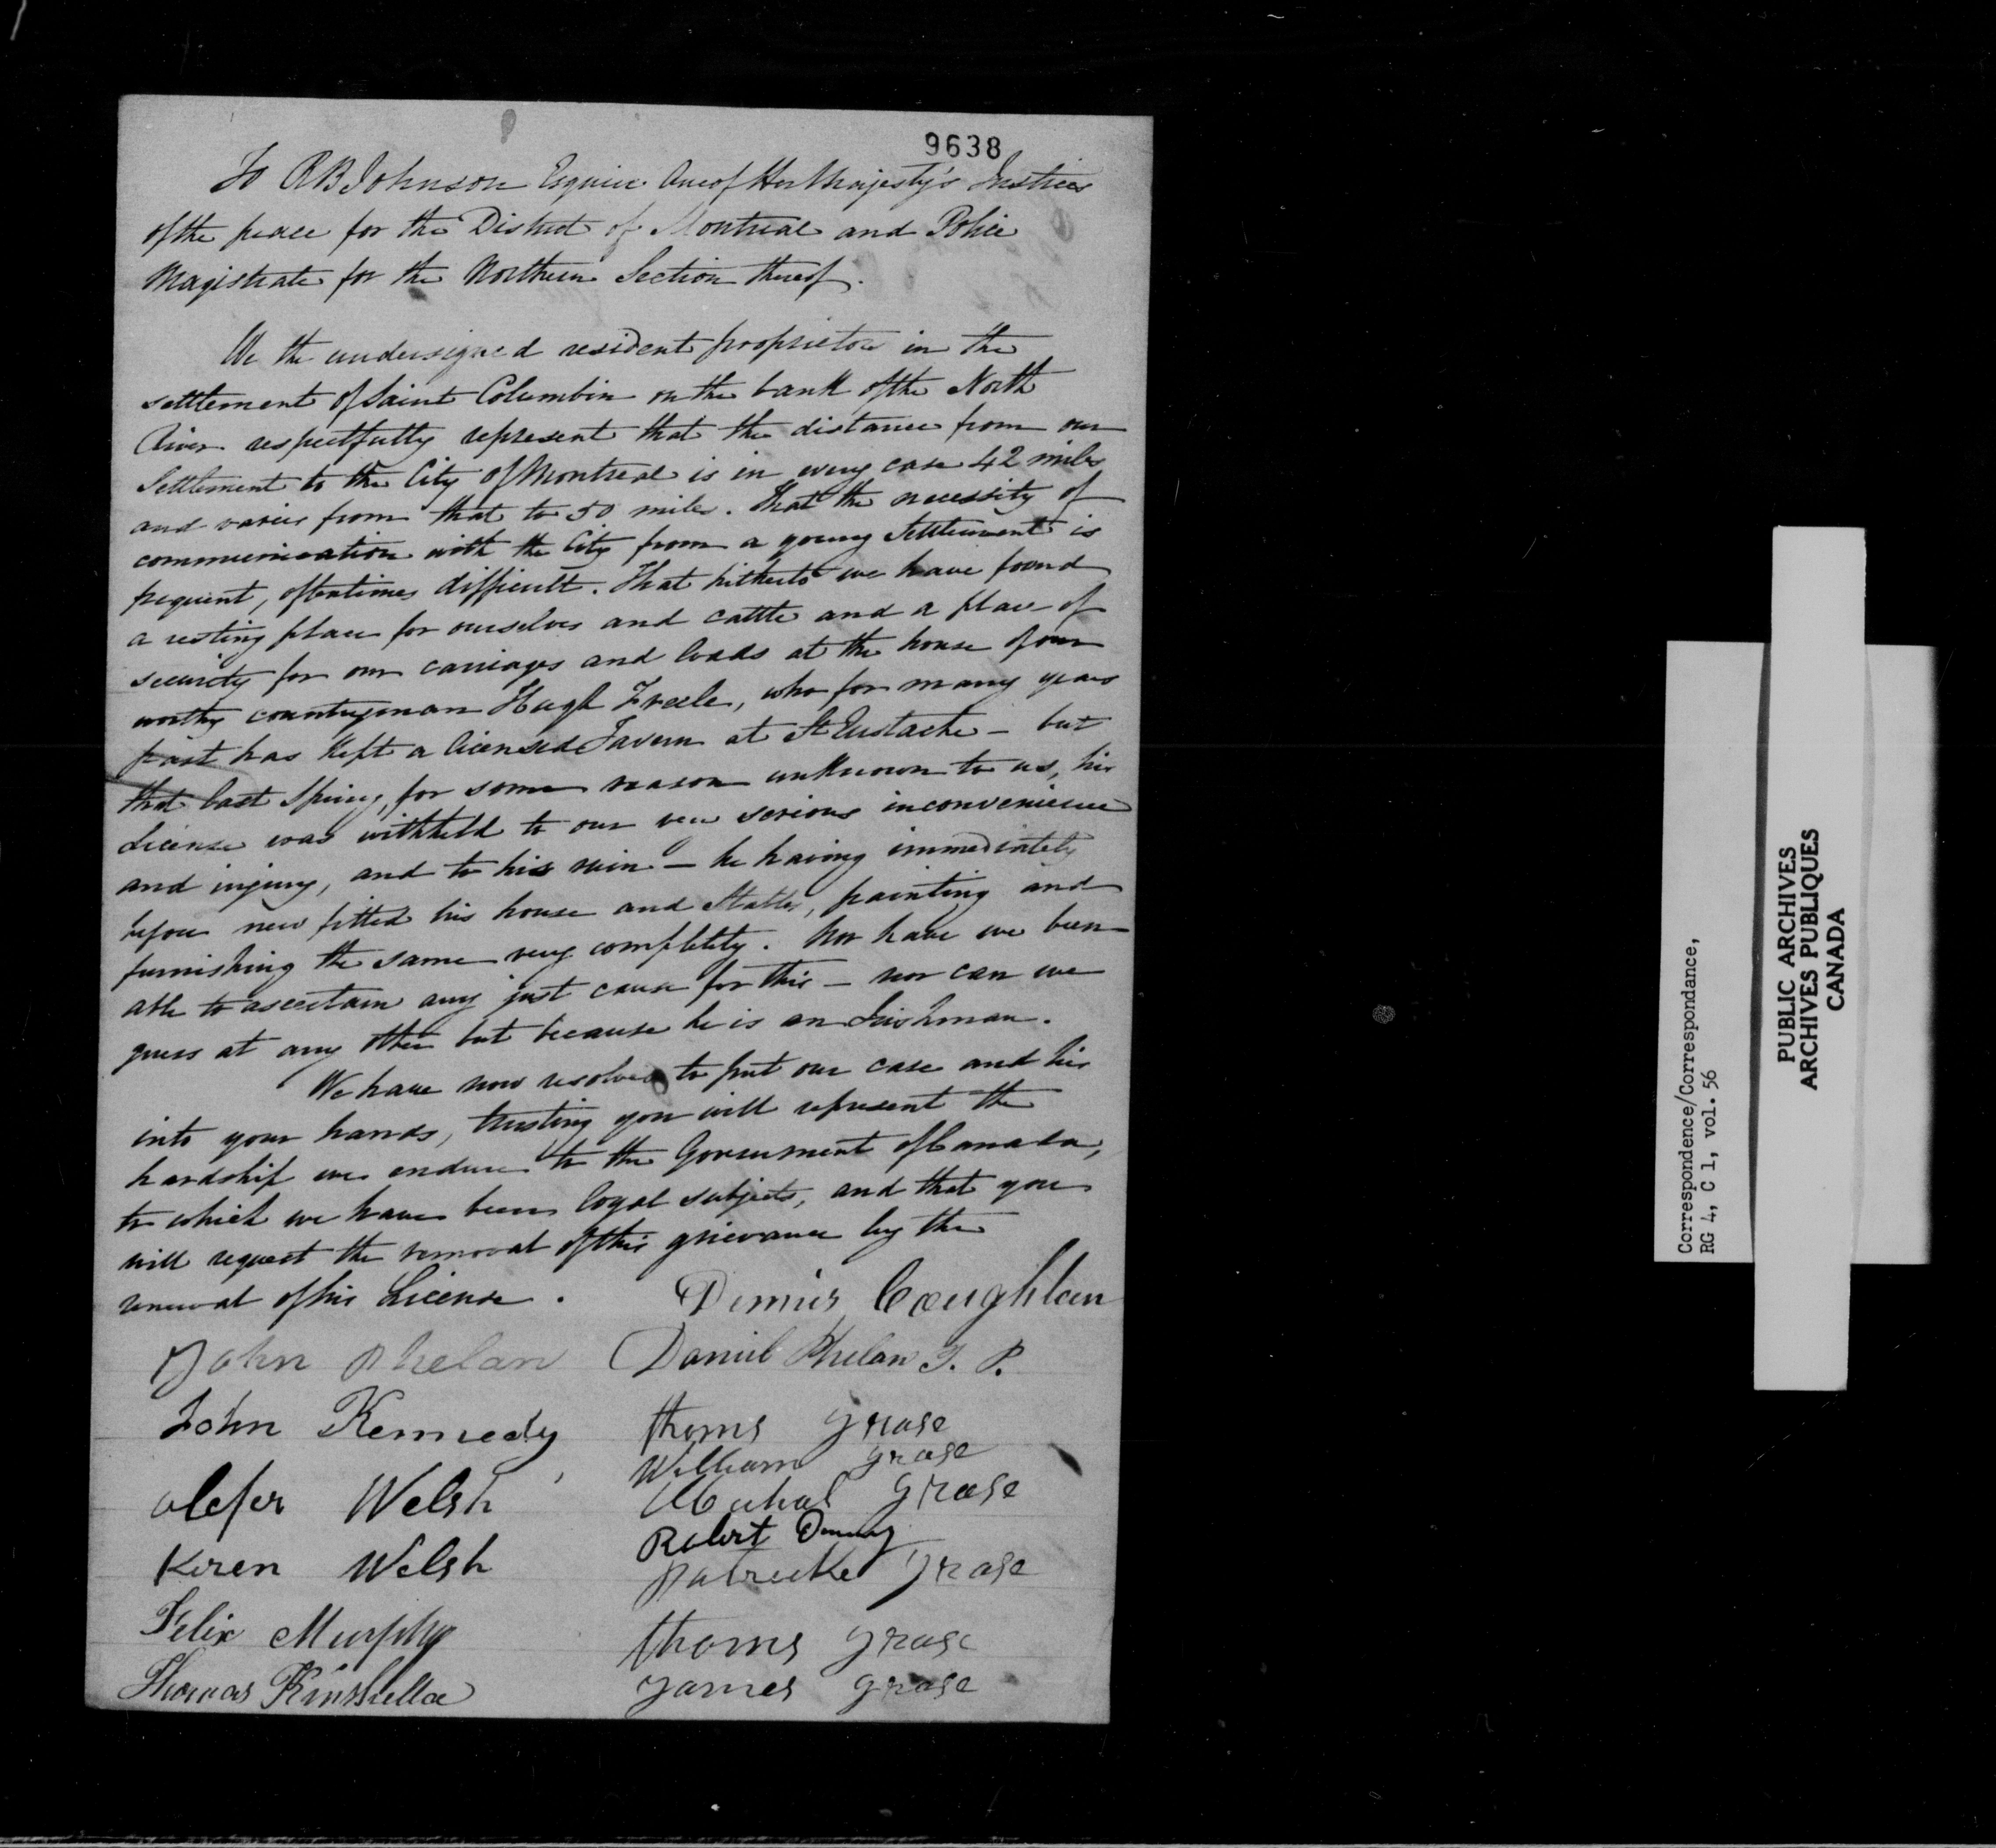 9638
To R B Johnson Esquire One of Her Majesty's Justices
of the peace for the District of Montreal and Police
Magistrate for the Northern Section thereof.
We the undersigned resident proprietors in the
settlement of Saint Columbin on the bank of the North
River respectfully represent that the distance from our
Settlement to the City of Montreal is in every case 42 miles
and varies from that to 50 miles. That the necessity of
communication with the City from a young Settlement is
frequent, oftentimes difficult. That hitherto we have found
a resting place for ourselves and cattle and a place of
security for our carriages and loads at the house of our
worthy countryman Hugh Freele, who for many years
past has kept a licensed Tavern at St Eustache – but
that last Spring, for some reason unknown to us, his
License was withheld to our very serious inconvenience
and injury, and to his ruin – he having immediately
before new fitted his house and Stables, painting and
furnishing the same very completely. Nor have we been
able to ascertain any just cause for this – nor can we
guess at any other but because he is an Irishman.
We have now resolved to put our case and his
into your hands, trusting you will represent the
hardship we endure to the Government of Canada,
to which we have been loyal subjects, and that you
will request the removal of this grievance by the
renewal of his License.
Dennis Coughlan
John Phelan
Daniel Phelan J. P.
John Kennedy
thoms grase
William grase
Welsh
Michal grase
Robert
Keren Welsh
patricke grase
Felix Murphy
thoms grase
Thomas Kinshella
James grase
Correspondence/Correspondance,
RG 4, C 1, vol. 56
PUBLIC ARCHIVES
ARCHIVES PUBLIQUES
CANADA